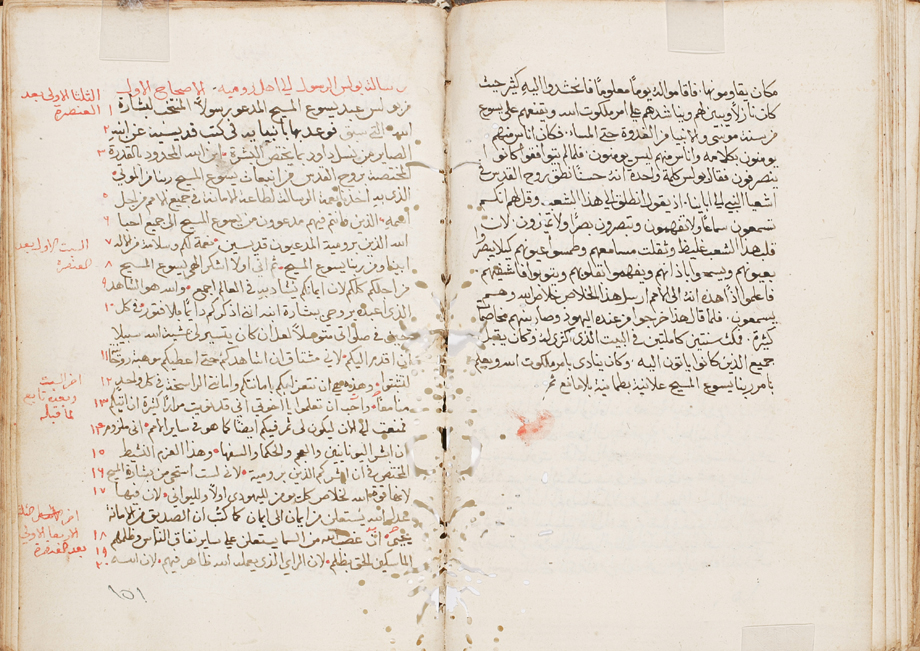 مكان يقاومونها فاقاموا له يوماً معلوماً فاتخذوا اليه كثير حيث
كان نازلاً ويبين لهم ويناشدهم على امر ملكوت الله ويقنعهم على يسوع
من سنة موسى والانبيا من الغدوة حتى المسا فكان اناس منهم
يومنون بكلامه واناس منهم ليس يومنون فلما لم يتوافقوا كانوا
ينصرفون فقال بولس كلمة واحدة انه حسناً نطق روح القدس في
اشعيا النبي الى ابائنا اذ يقول انطلق الى هذا الشعب وقل لهم انكم
تسمعون سماعاً ولا تفهمون وتبصرون بصراً ولا لان
قلب هذا الشعب غليظ وثقلت مسامعهم وطمسوا عيونهم كيلا يبصروا
بعيونهم ويسمعوا باذانهم ويفهموا بقلوبهم ويتوبوا فاشفيهم
فاعلموا اذاً هذه انه الى الامم ارسل هذا الخلاص خلاص الله وهم
يسمعون فلما قال هذا خرجوا من عنده اليهود وصار بينهم مخاصمة
كثيرة فمكث سنتين كاملتين في البيت الذي اكترى له وكان يقبل
جميع الذين كانوا ياتون اليه وكان ينادي بامر ملكوت الله ويعلم
بامر ربنا يسوع المسيح علانية بطمانية بلا مانع
رسالة بولس الرسول الى اهل رومية الاصحاح الاول
الثلثا الاولى بعد
العنصرة
من بولس عبد يسوع المسيح المدعو رسولاً المنتخب لبشارة ١
الله التي سبق فوعد بها بانبيايه في كتب قديسيه عن ابنه ٢
الصاير من نسل داود بما يختص البشرة ابن الله المحدود بالقدرة ٣
المختصة بروح القدس من انبعاث يسوع المسيح ربنا من الموتى
الذي به اخذنا النعمة الرسالة لطاعة الامانة في جميع الامم من اجل ٥
اسمه الذين انتم فيهم مدعوون من يسوع المسيح الى جميع احبا ٦
السبت الاولى بعد
العنصرة
الله الذين برومية المدعوين قديسين نعمة لكم وسلامة من الاله ٧
ابينا ومن ربنا يسوع المسيح ثم اني اولاً اشكر الهي يسوع المسيح ٨
من اجلكم كلكم لان ايمانكم يشاد به في العالم اجمع والله هو الشاهد ٩
الذي اعبده بروحي ببشارة ابنه اني اذكركم دايماً بلا فتور في كل ١٠
حين في صلواتي متوصلاً لعل ان كان يتسهل لي بمشية الله سبيلاً
في ان اقدم اليكم لاني مشتاق ان اشاهدكم حتى اعطيكم موهبة روحية ١١
اخر السبت
وبعده تابع
لما قبله
لتتقووا وهذه هي ان نتعزا بكم بامانتكم وامانتي الراسخة في كل واحد ١٢
منا معاً واحب ان تعلموا يا اخوتي اني قد نويت مراراً كثيرة ان اتيكم ١٣
فمنعت الى الان ليكون لي ثمر فيكم ايضاً كما هو في ساير الامم اني ملزوم ١٤
ان ابشر اليونانيين والعجم والحكما والسفها وهذا العزم النشيط ١٥
المختص بي ان ابشركم الذين برومية لاني لست استحي من بشارة المسيح ١٦
لانها قوة الله لخلاص كل من يومن اليهودي اولاً واليوناني لان فيها ١٧
عدل الله يستعلن من ايمان الى ايمان كما كتب ان الصديق من الامانة
الاربعا الاولى
بعد العنصرة
يحيى ان غضب الله من السما يستعلن على ساير نفاق الناس وظلمهم ١٨
الماسكين الحق بظلم لان الراي الذي بمعرفة الله ظاهر فيهم لان الله ١٩
١٥١